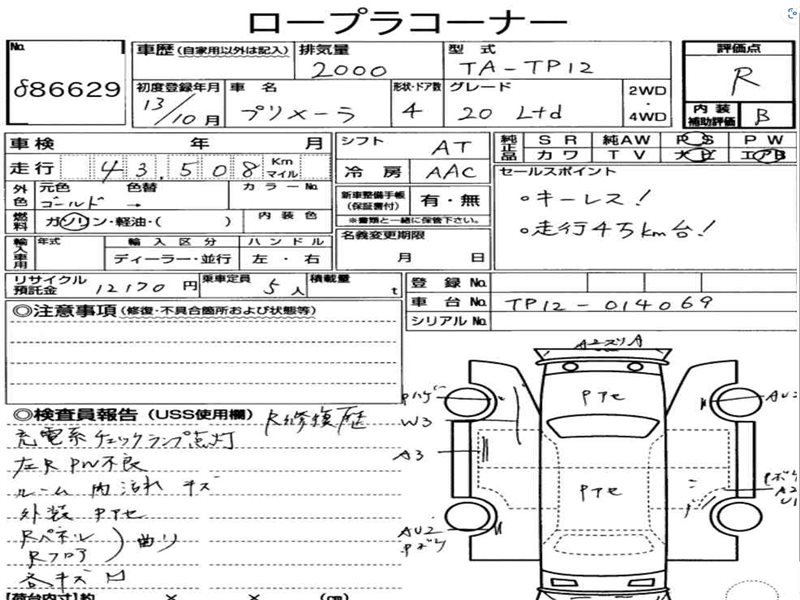 ロープラコーナー
No. 86629
車歴(自家用以外は記入) 排気量 2000 型式 TA-TP12
初度登録年月 13/10月 車名 プリメーラ 形状・ドア数 4 グレード 20 Ltd 2WD・4WD
評価点 R
内装補助評価 B
車検 年 月 シフト AT
走行 43,508 Km マイル 冷房 AAC
純正品 SR 純AW PS PW
カワ TV 大ビ エアB
外色 元色 ゴールド 色替 → カラーNo.
新車整備手帳(保証書付) 有・無
※書類と一緒に保管下さい。
セールスポイント
。キーレス!
。走行4万km台!
燃料 ガソリン・軽油・( ) 内装色
輸入車用 年式 輸入区分 ディーラー・並行 ハンドル 左・右
名義変更期限 月 日
リサイクル預託金 12170円 乗車定員 5人 積載量 t
登録No.
車台No. TP12-014069
シリアルNo.
◎注意事項(修復・不具合箇所および状態等)
◎検査員報告(USS使用欄) R修復歴
充電系チェックランプ点灯
左R PW不良
ルーム内汚れ キズ
外装 PTセ
Rパネル
Rフロア
)曲り
各キズ凹
【荷台内寸】約 × × (cm)
PTセ
W3
A3
PTセ
AU2